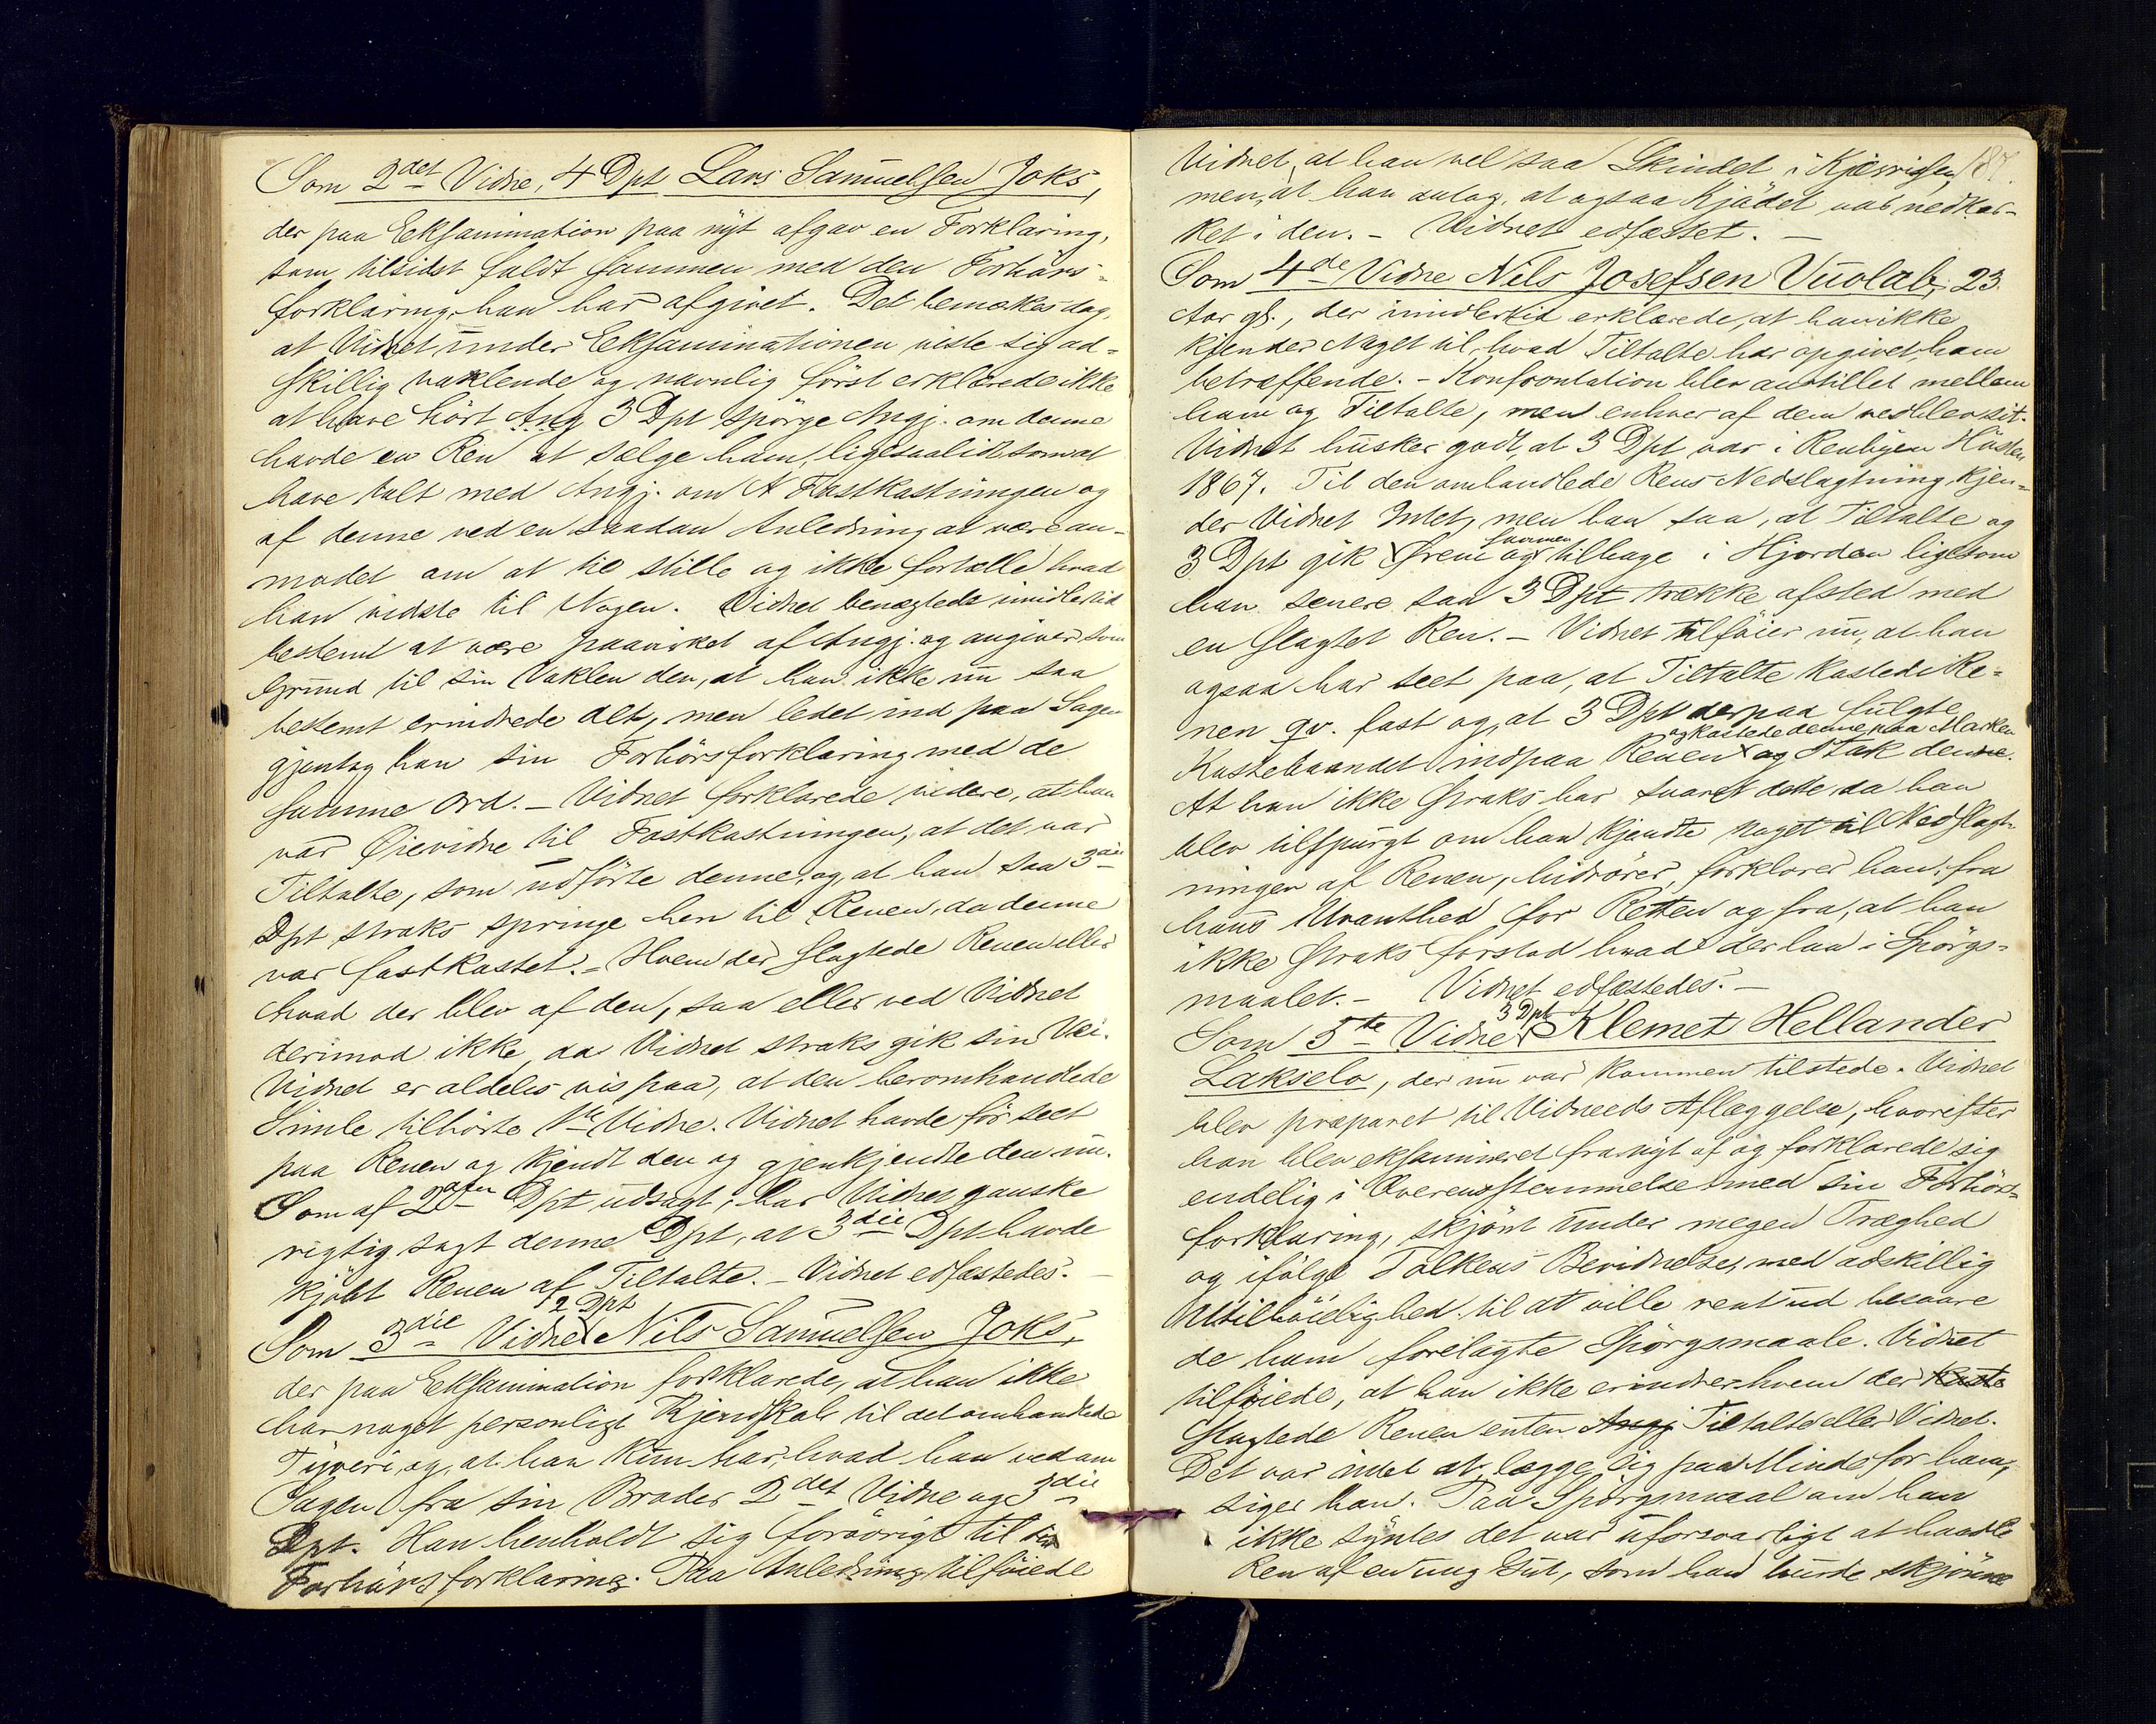 Som 2det Vidne, 4 Dpt Lars Samuelsen Joks,
der paa Eksamination paa nyt afgav en Forklaring,
som tilsidst faldt sammen med den Forhørs-
forklaring, han har afgivet. Det bemærkes dog,
at Vidnet under Eksaminationen viste sig ad-
skillig vaklende og navnlig först erklærede ikke
at have hört Ang 3 Dpt spörge Angj. om denne
havde en Ren at sælge ham, ligesaalidt som at
have talt med Angj. om Fastkastningen og
af denne ved en saadan Anledning at være an-
modet om at tie stille og ikke fortælle hvad
han vidste til Nogen. Vidnet benægtede imidlertid
bestemt at være paavirket af Angj. og angiver som
Grund til sin Vaklen den, at han ikke nu saa
bestemt erindrede alt, men ledet ind paa Sagen
gjentog han sin Forhörsforklaring med de
samme Ord. – Vidnet forklarede videre, at han
var Öievidne til Fastkastningen, at det var
Tiltalte, som udförte denne, og, at han saa 3die
Dpt straks springe hen til Renen, da denne
var fastkastet. – Hvem der slagtede Renen eller
hvad der blev af den, saa eller ved Vidnet
derimod ikke, da Vidnet straks gik sin Vei.
Vidnet er aldeles vis paa, at den heromhandlede
Simle tilhörte 1ste Vidne. Vidnet havde för seet
paa Renen og kjendt den og gjenkjendte den nu.
Som af 2den Dpt udsagt, har Vidnet ganske
rigtig sagt denne Dpt, at 3die Dpt havde
kjöbt Renen af Tiltalte. – Vidnet edfæstedes. –
Som 3die Vidne 2 Dpt Nils Samuelsen Joks,
der paa Eksamination forklarede, at han ikke
har noget personligt Kjendskab til det omhandlede
Tyveri, og, at han kun har, hvad han ved om
Sagen fra sin Broder 2det Vidne og 3die
Dpt. Han henholdt sig forövrigt til sin
Forhörsforklaring. Paa Anledning tilföiede
Vidnet, at han vel saa Skindet i Kjærrisen, 187.
men, at han antog, at ogsaa Kjödet var nedkas-
ket i den. – Vidnet edfæstet. –
Som 4de Vidne Nils Josefsen Vuolab, 23
Aar gl., der imidlertid erklærede, at han ikke
kjender Noget til, hvad Tiltalte har opgivet ham
betræffende. – Konfrontation blev anstillet mellem
ham og Tiltalte, men enhver af dem vedblev sit.
Vidnet husker godt, at 3 Dpt var i Renbyen Hösten
1867. Til den omhandlede Rens Nedslagtning kjen-
der Vidnet Intet, men han saa, at Tiltalte og
3 Dpt gik frem og tilbage sammen i Hjorden ligesom
han senere saa 3 Dpt trække afsted med
en slagtet Ren. – Vidnet tilföier nu, at han
ogsaa har seet paa, at Tiltalte kastede Re-
nen qv. fast og, at 3 Dpt derpaa fulgte
Kastebaandet indpaa Renen og kastede denne paa Marken og stak denne.
At han ikke straks har svaret dette, da han
blev tilspurgt om han kjendte noget til Nedslagt-
ningen af Renen, hidrører, forklarer han, fra
hans Uvanthed for Retten og fra, at han
ikke straks forstod hvad der laa i Spörgs-
maalet. – Vidnet edfæstedes. –
Som 5te Vidne 3 Dpt Klemet Hellander
Lakselv, der nu var kommen tilstede. Vidnet
blev præparet til Vidneeds Aflæggelse, hvorefter
han blev eksamineret fra nyt af og forklarede sig
endelig i Overensstemmelse med sin Forhörs-
forklaring, skjönt under megen Træghed
og ifölge Tolkens Bevidnelse, med adskillig
Utilböielighed til at ville rent ud besvare
de ham forelagte Spörgsmaale. Vidnet
tilföiede, at han ikke erindrer hvem der kaste
slagtede Renen enten Angj Tiltalte eller Vidnet.
Det var intet at lægge sig paa Minde for ham,
siger han. Paa Spörgsmaal om han
ikke syntes det var uforsvarligt at handle
Ren af en ung Gut, som han burde skjönne